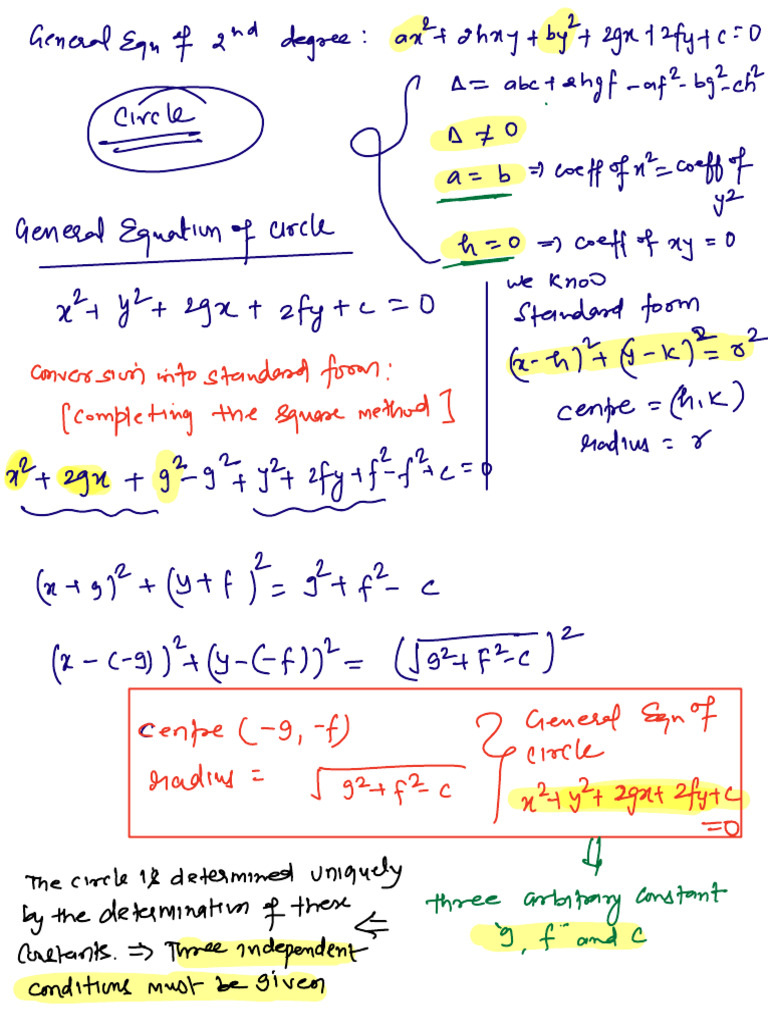 General Eqn of 2nd degree: ax² + 2hxy + by² + 2gx + 2fy + c = 0
Δ = abc + 2hgf - af² - bg² - ch²
Circle
Δ ≠ 0
a = b ⇒ coeff of x² = coeff of y²
h = 0 ⇒ coeff of xy = 0
General Equation of circle
x² + y² + 2gx + 2fy + c = 0
we know
Standard form
(x-h)² + (y-k)² = r²
centre = (h,k)
radius = r
conversion into standard form:
[completing the square method]
x² + 2gx + g² - g² + y² + 2fy + f² - f² + c = 0
(x+g)² + (y+f)² = g² + f² - c
(x-(-g))² + (y-(-f))² = (√g²+f²-c)²
centre (-g, -f)
radius = √g²+f²-c
General Eqn of
circle
x² + y² + 2gx + 2fy + c
=0
three arbitrary constant
g, f and c
The circle is determined uniquely
by the determination of these
constants. ⇒ Three independent
conditions must be given